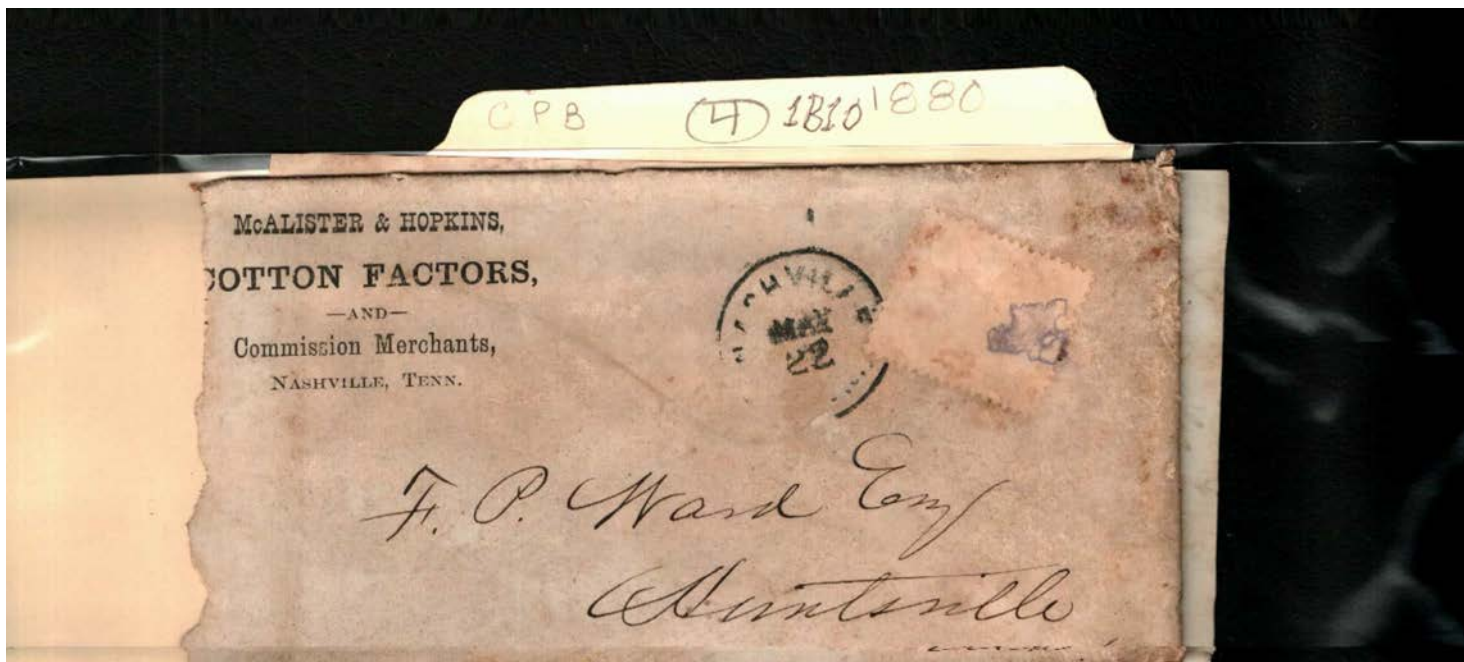 CPB (4) 1B10 1880
McALISTER & HOPKINS,
COTTON FACTORS,
—AND—
Commission Merchants,
NASHVILLE, TENN.
NASHVILLE
MAY
22
F. P. Ward Esq
Huntsville